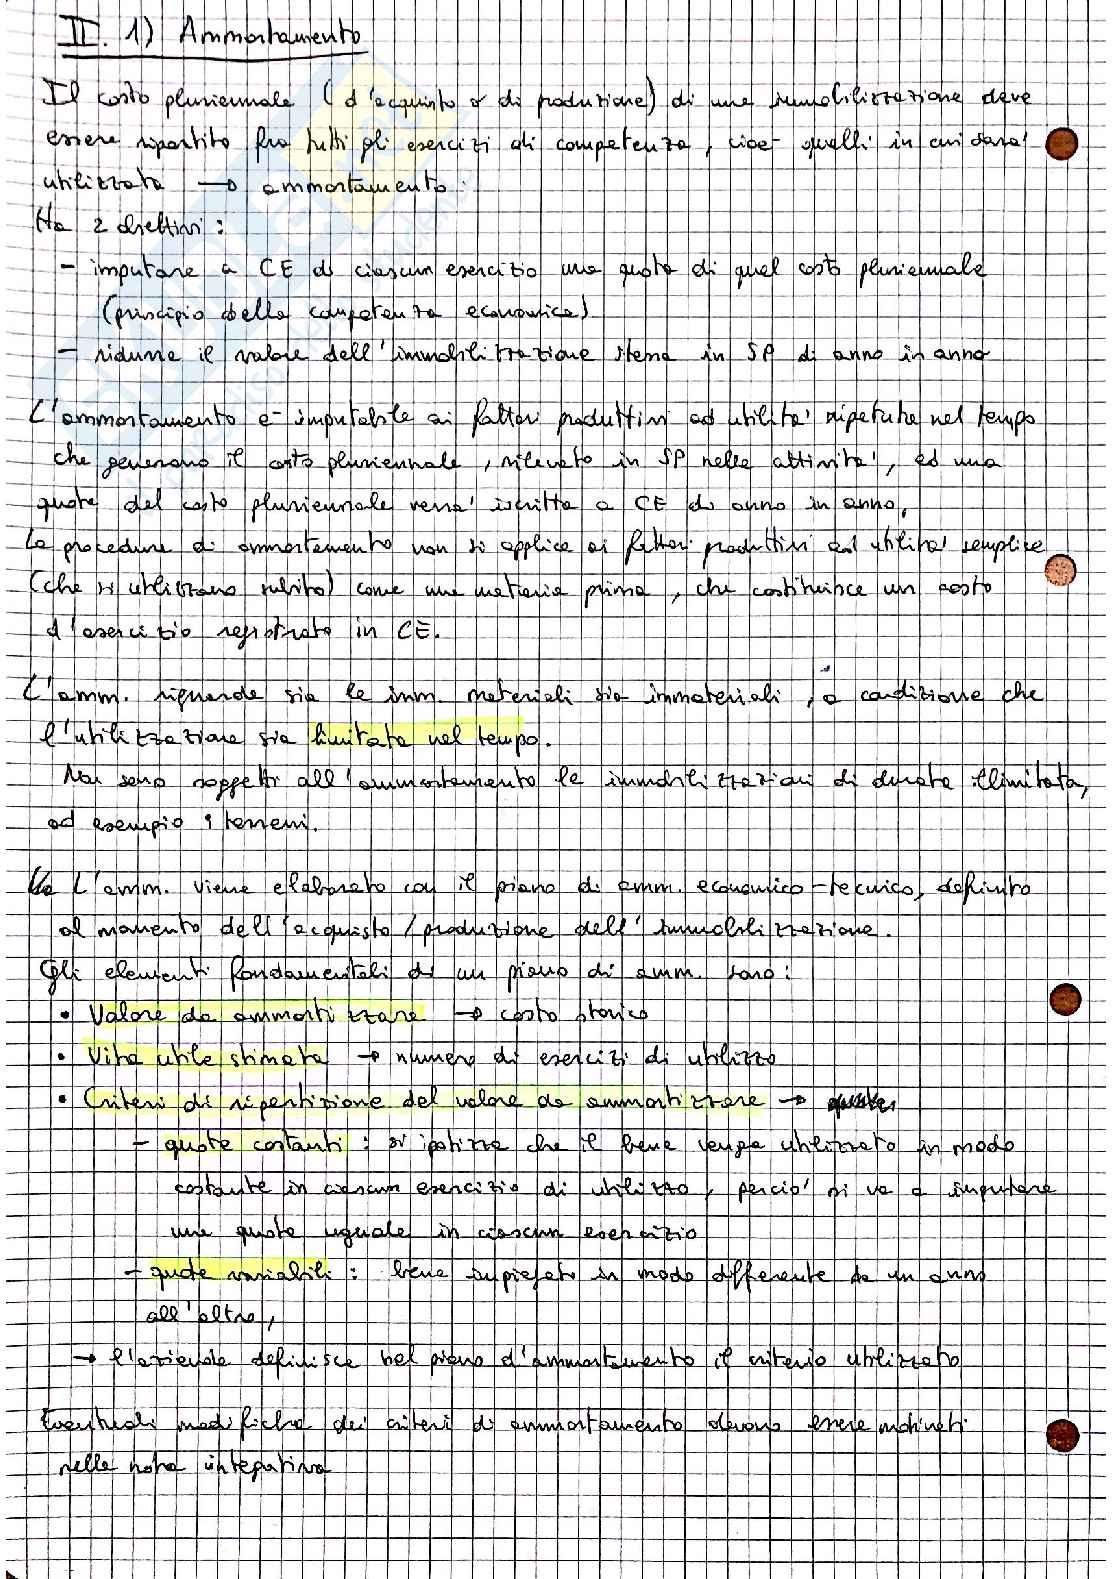 II. 1) Ammortamento
Il costo pluriennale (d'acquisto o di produzione) di una immobilizzazione deve
essere ripartito fra tutti gli esercizi di competenza, cioè quelli in cui sarà
utilizzata → ammortamento.
Ha 2 obiettivi:
- imputare a CE di ciascun esercizio una quota di quel costo pluriennale
(principio della competenza economica)
- ridurre il valore dell'immobilizzazione stessa in SP di anno in anno
L'ammortamento è imputabile ai fattori produttivi ad utilità ripetuta nel tempo
che generano il costo pluriennale, rilevato in SP nelle attività, ed una
quota del costo pluriennale verrà iscritta a CE di anno in anno,
La procedura di ammortamento non si applica ai fattori produttivi ad utilità semplice
(che si utilizzano subito) come una materia prima, che costituisce un costo
d'esercizio registrato in CE.
L'amm. riguarda sia le imm. materiali sia immateriali, a condizione che
l'utilizzazione sia limitata nel tempo.
Non sono soggetti all'ammortamento le immobilizzazioni di durata illimitata,
ad esempio i terreni.
L'amm. viene elaborato con il piano di amm. economico-tecnico, definito
al momento dell'acquisto/produzione dell'immobilizzazione.
Gli elementi fondamentali di un piano di amm. sono:
• Valore da ammortizzare → costo storico
• Vita utile stimata → numero di esercizi di utilizzo
• Criteri di ripartizione del valore da ammortizzare →
- quote costanti: si ipotizza che il bene venga utilizzato in modo
costante in ciascun esercizio di utilizzo, perciò si va a imputare
una quota uguale in ciascun esercizio
- quote variabili: bene impiegato in modo differente da un anno
all'altro,
→ l'azienda definisce nel piano d'ammortamento il criterio utilizzato
Eventuali modifiche dei criteri di ammortamento devono essere motivati
nella nota integrativa